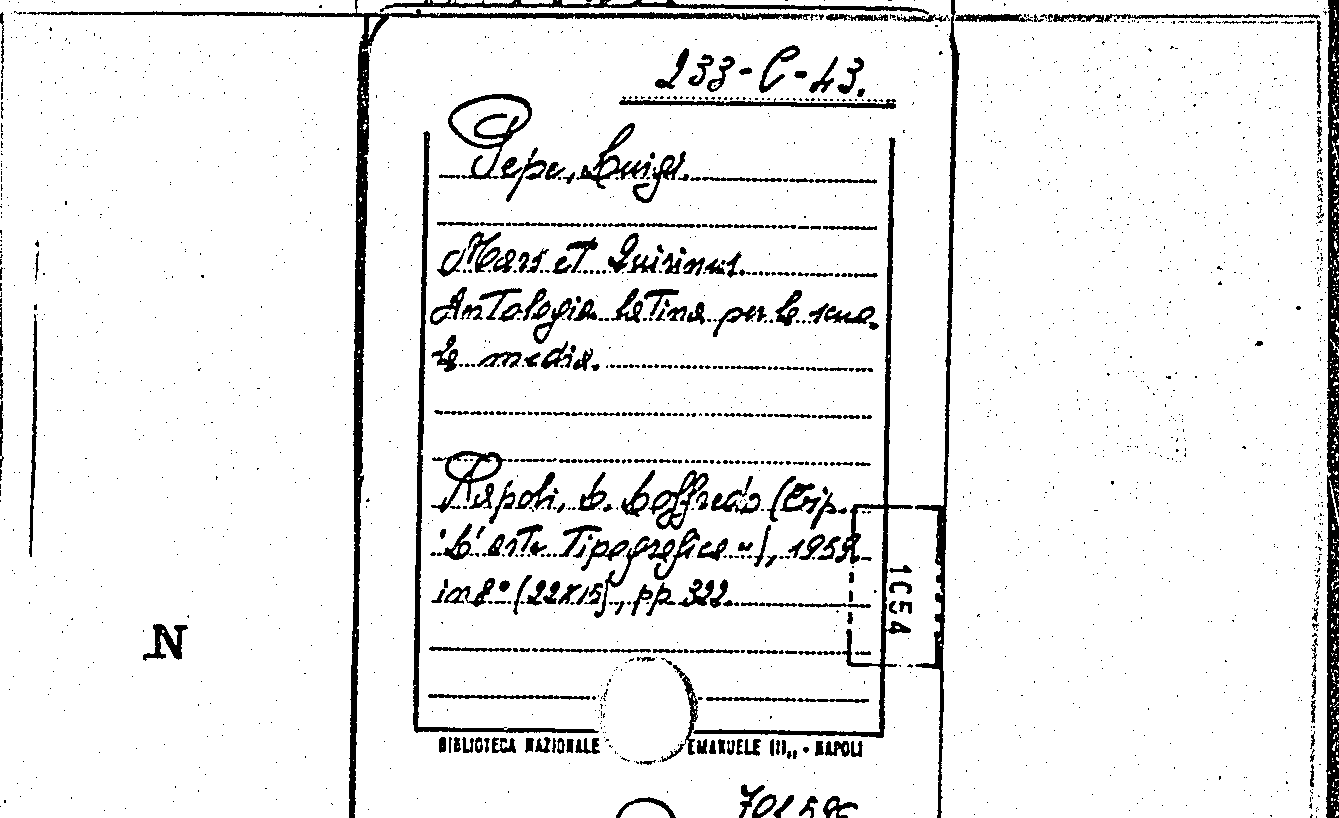 233-C-43.
Pepe, Luigi.
Mars et Quirinus.
Antologia latina per la scuo-
la media.
Napoli, L. Loffredo (Tip.
"L'arte Tipografica"), 1959.
in 8° (22x15), pp 322.
1C54
N
BIBLIOTECA NAZIONALE EMANUELE III,, - NAPOLI